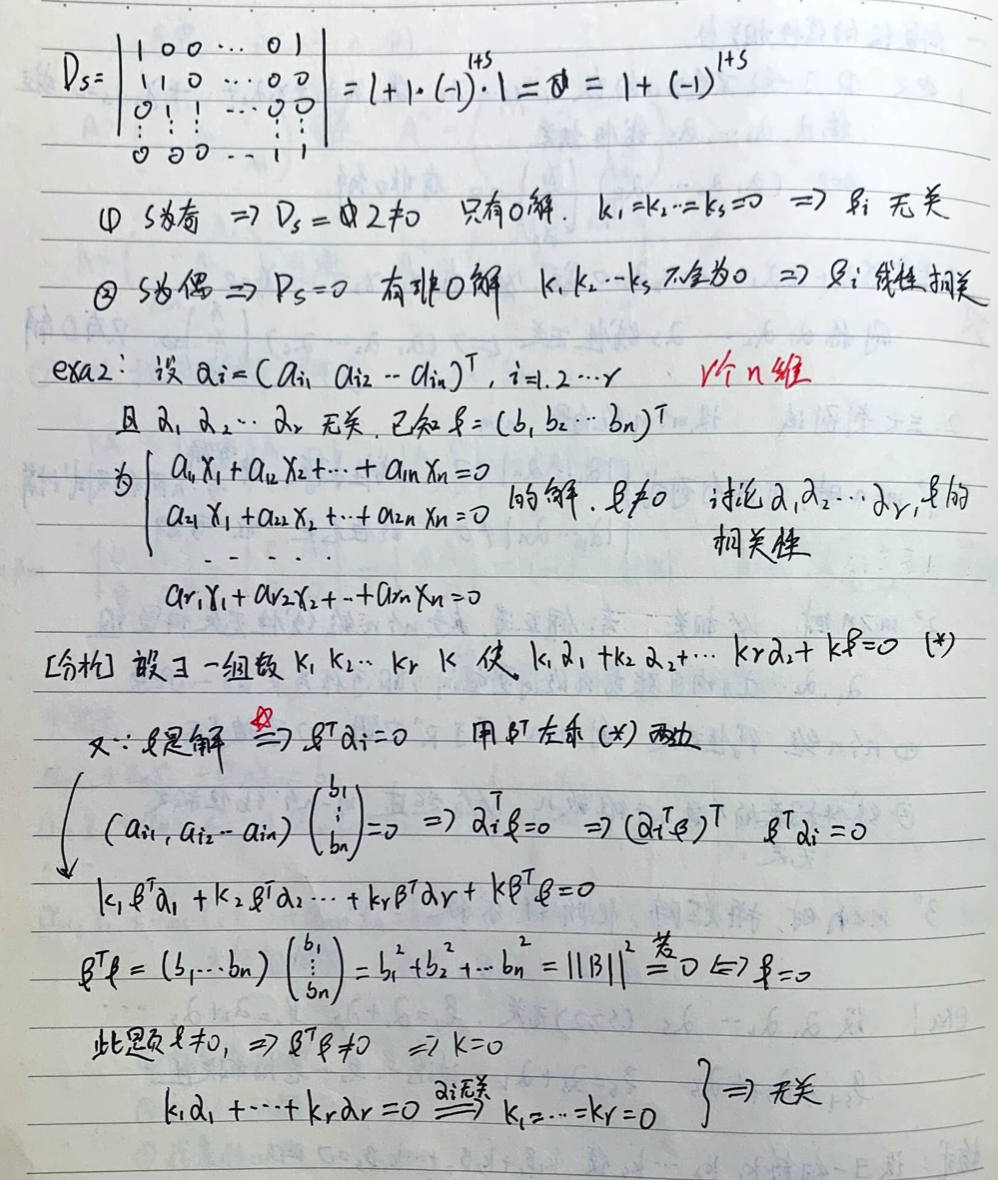 Ds= | 1 0 0 ⋯ 0 1 |
| 1 1 0 ⋯ 0 0 | = 1+1·(-1)^{1+s}·1 = = 1+(-1)^{1+s}
| 0 1 1 ⋯ 0 0 |
| ⋮ ⋮ ⋮ ⋮ ⋮ |
| 0 0 0 ⋯ 1 1 |
① s为奇 => Ds = 2≠0 只有0解. k₁=k₂⋯=ks=0 => βi 无关
② s为偶 => Ds=0 有非0解 k₁ k₂⋯ks 不全为0 => βi 线性相关
exa2: 设 αi=(ai₁ ai₂ ⋯ ain)ᵀ, i=1.2⋯r r个n维
且 α₁ α₂⋯ αr 无关. 已知 β=(b₁ b₂⋯bn)ᵀ
为 { a₁₁x₁+a₁₂x₂+⋯+a₁nxn=0
a₂₁x₁+a₂₂x₂+⋯+a₂nxn=0 的解. β≠0 讨论α₁α₂⋯αr, β的
⋯⋯ 相关性
ar₁x₁+ar₂x₂+⋯+arnxn=0
[分析] 设∃一组数 k₁ k₂⋯ kr k 使 k₁α₁+k₂α₂+⋯krα₂+kβ=0 (*)
又∵ β是解 ☆=> βᵀαi=0 用βᵀ左乘(*)两边
(ai₁, ai₂⋯ain) (b₁ ⋮ bn) =0 => αiᵀβ=0 => (αiᵀβ)ᵀ βᵀαi=0
k₁βᵀα₁+k₂βᵀα₂⋯+krβᵀαr+kβᵀβ=0
βᵀβ=(b₁⋯bn) (b₁ ⋮ bn) = b₁²+b₂²+⋯bn² = ||β||² 若= 0 <=> β=0
此题β≠0, => βᵀβ≠0 => k=0
k₁α₁+⋯+krαr=0 αi无关=> k₁=⋯=kr=0 } => 无关